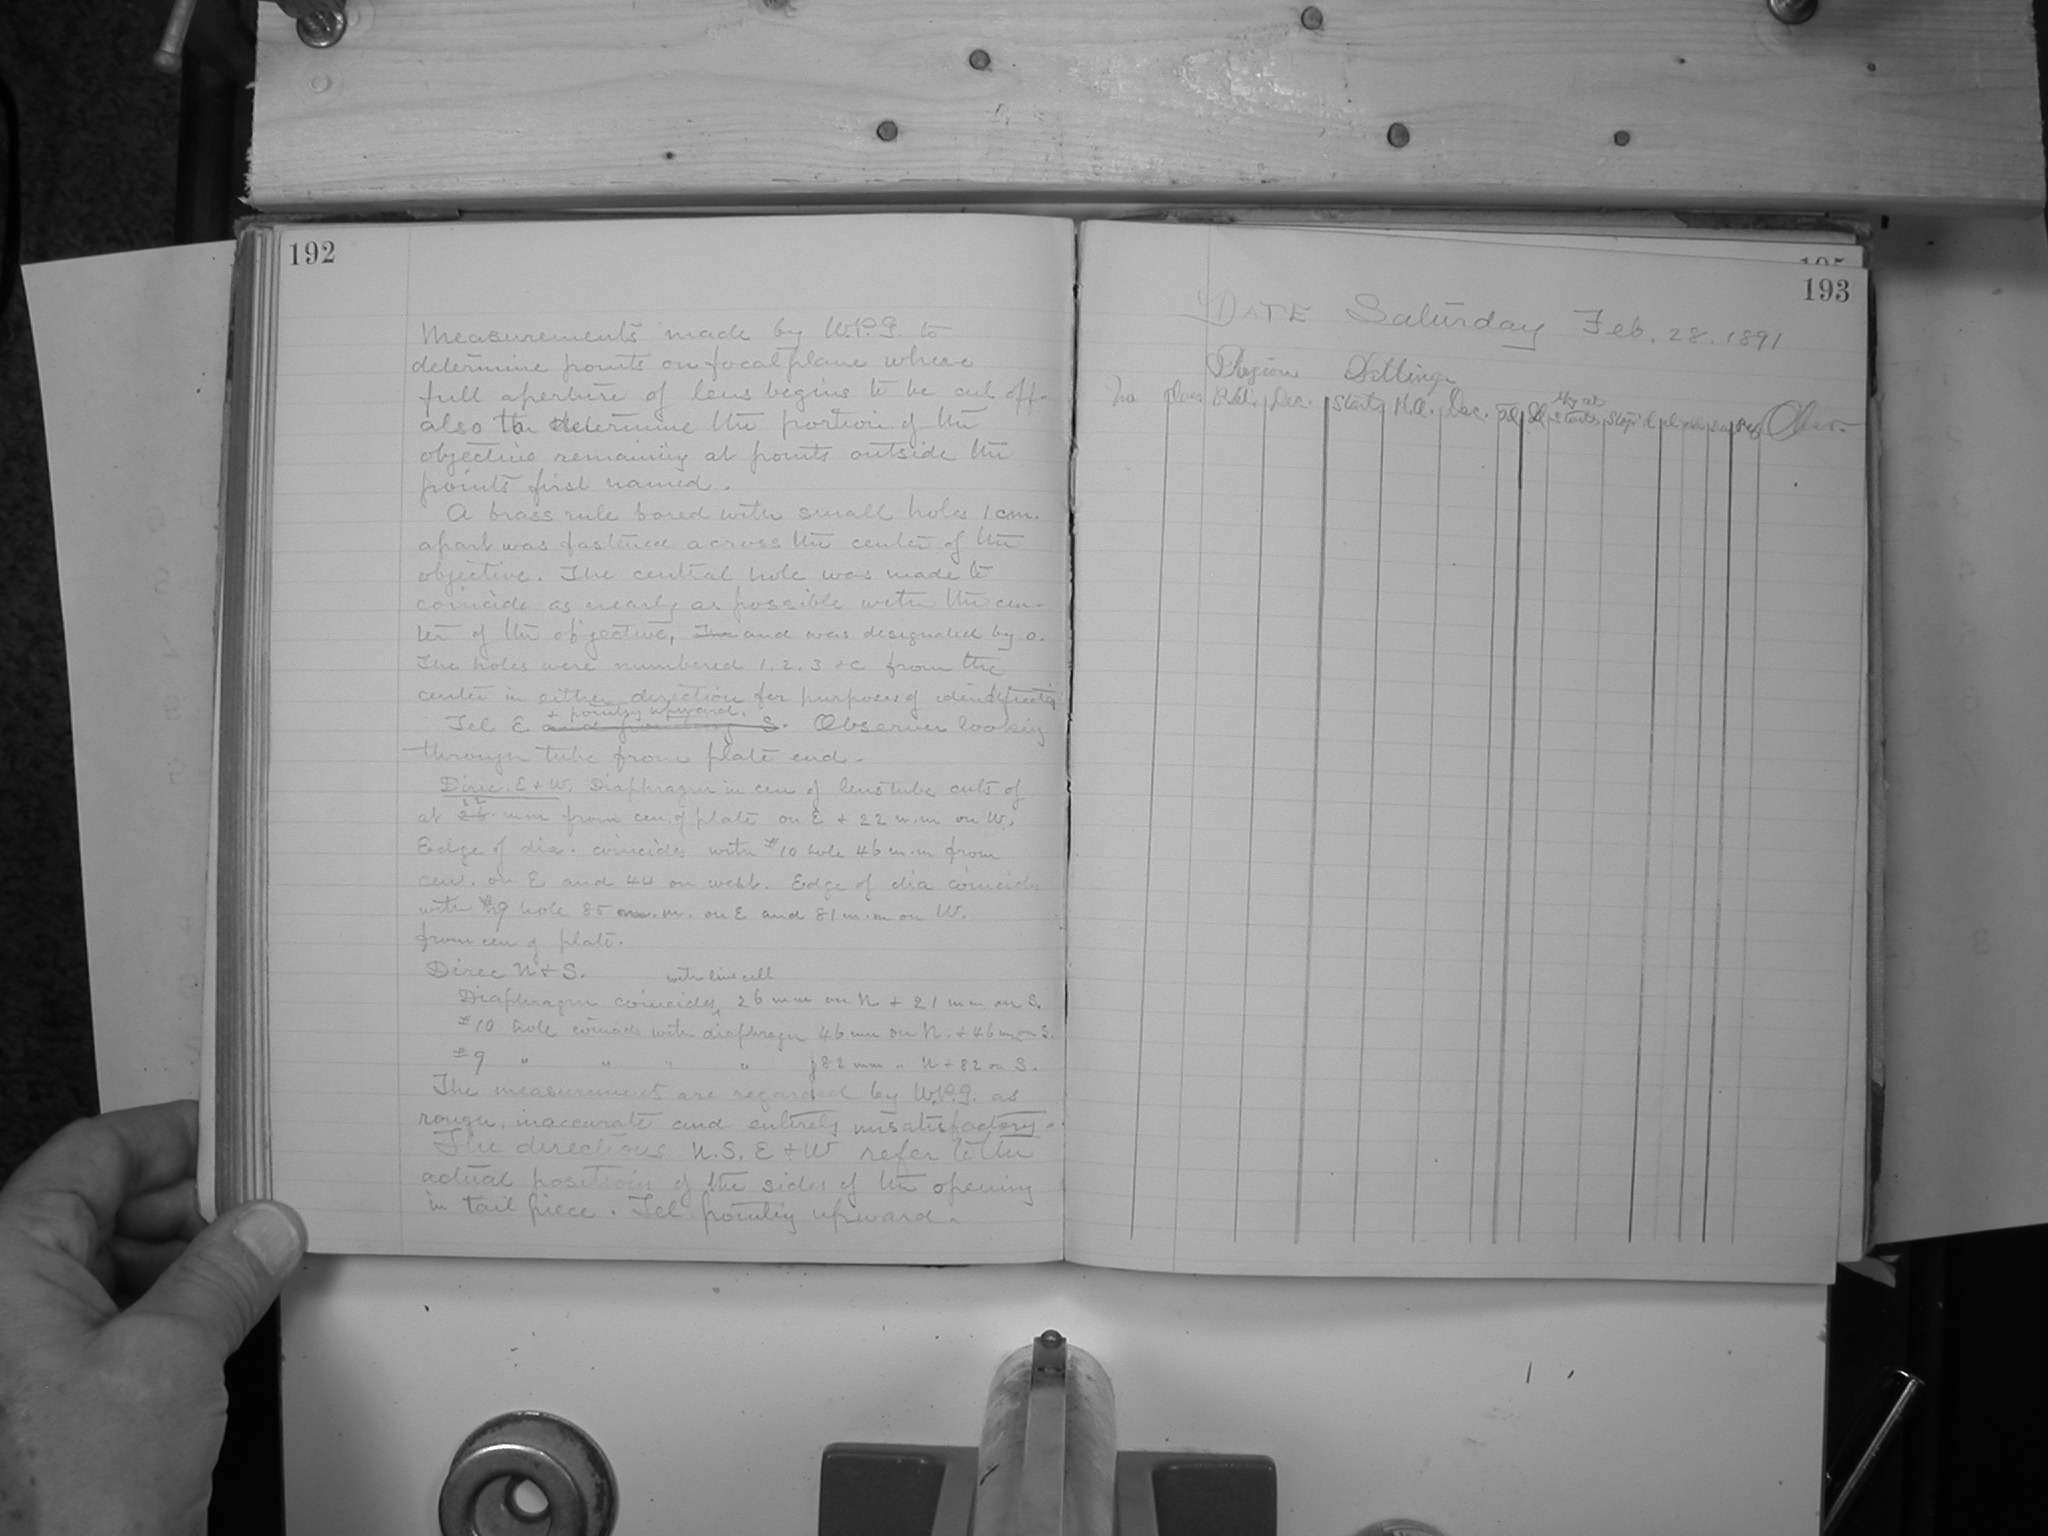 192
Measurements made by W.P.G. to
determine points on focal plane where
full aperture of lens begins to be cut off.
also to determine the portion of the
objective remaining at points outside the
points first named.
A brass rule bored with small holes 1 cm.
apart was fastened across the center of the
objective. The central hole was made to
coincide as nearly as possible with the cen-
ter of the objective, The and was designated by o.
The holes were numbered 1. 2. 3 &c from the
center in either direction for purposes of identification
+ pointing upward.
Tel E and pointing S. Observer looking
through tube from plate end.
Direc. E + W. Diaphragm in cen of lens tube cuts of
22
at mm from cen of plate on E + 22 m.m on W.
Edge of dia. coincides with #10 hole 46 m.m from
cen. on E and 44 on west. Edge of dia coincides
with #9 hole 85 m.m. on E and 81 m.m on W.
from cen of plate.
Direc N + S.
with line cell
Diaphragm coincides 26 mm on N + 21 mm on S.
#10 hole coincides with diaphragm 46 mm on N. + 46 m on S.
#9 " " " " 82 mm " N + 82 on S.
The measurement are regarded by W.P.G. as
rough, inaccurate and entirely unsatisfactory.
The directions N. S. E + W refer to the
actual positions of the sides of the opening
in tail piece. Tel. pointing upward.
195
193
DATE Saturday Feb. 28. 1891
Region Settings
No Dec. Start H.A. Dec. Start Stop Obser.